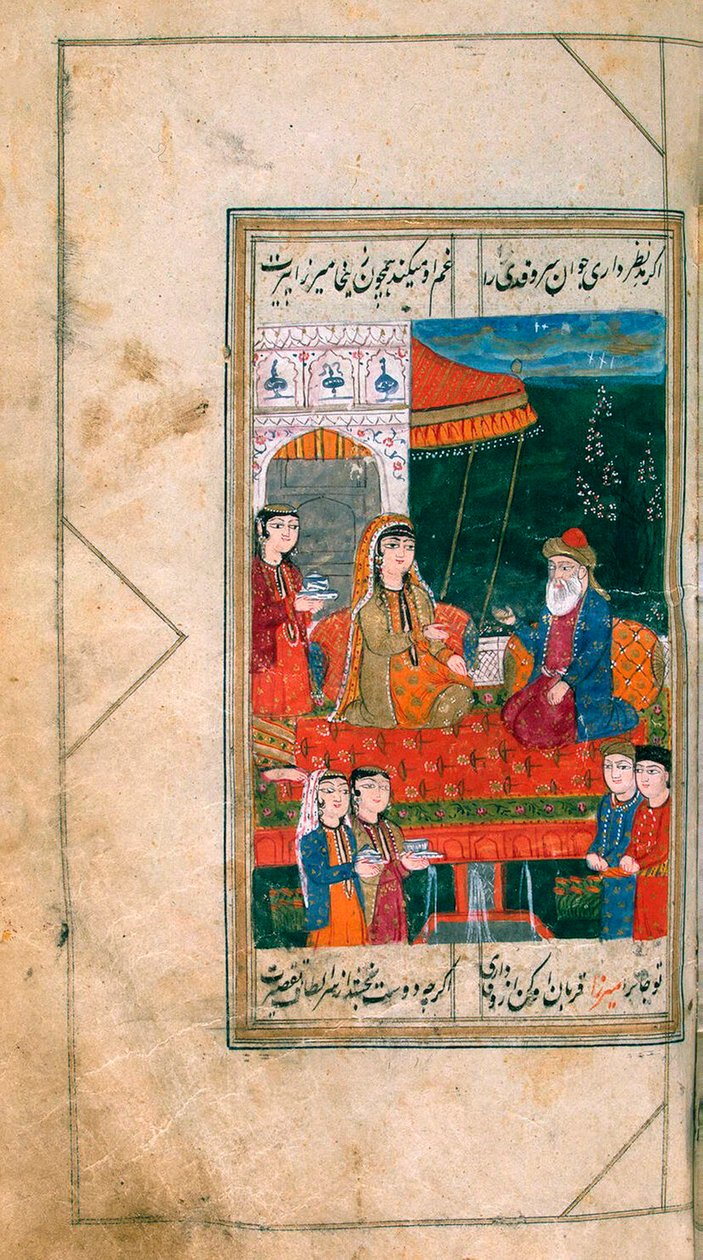 اگر مد نظر داری جوان سرو قدی را غم او میکند همچون زلیخا میرزا پیرت
تو جان را میرزا قربان او کن از وفاداری اگر چه دوست از سر الطاف تقصیرت